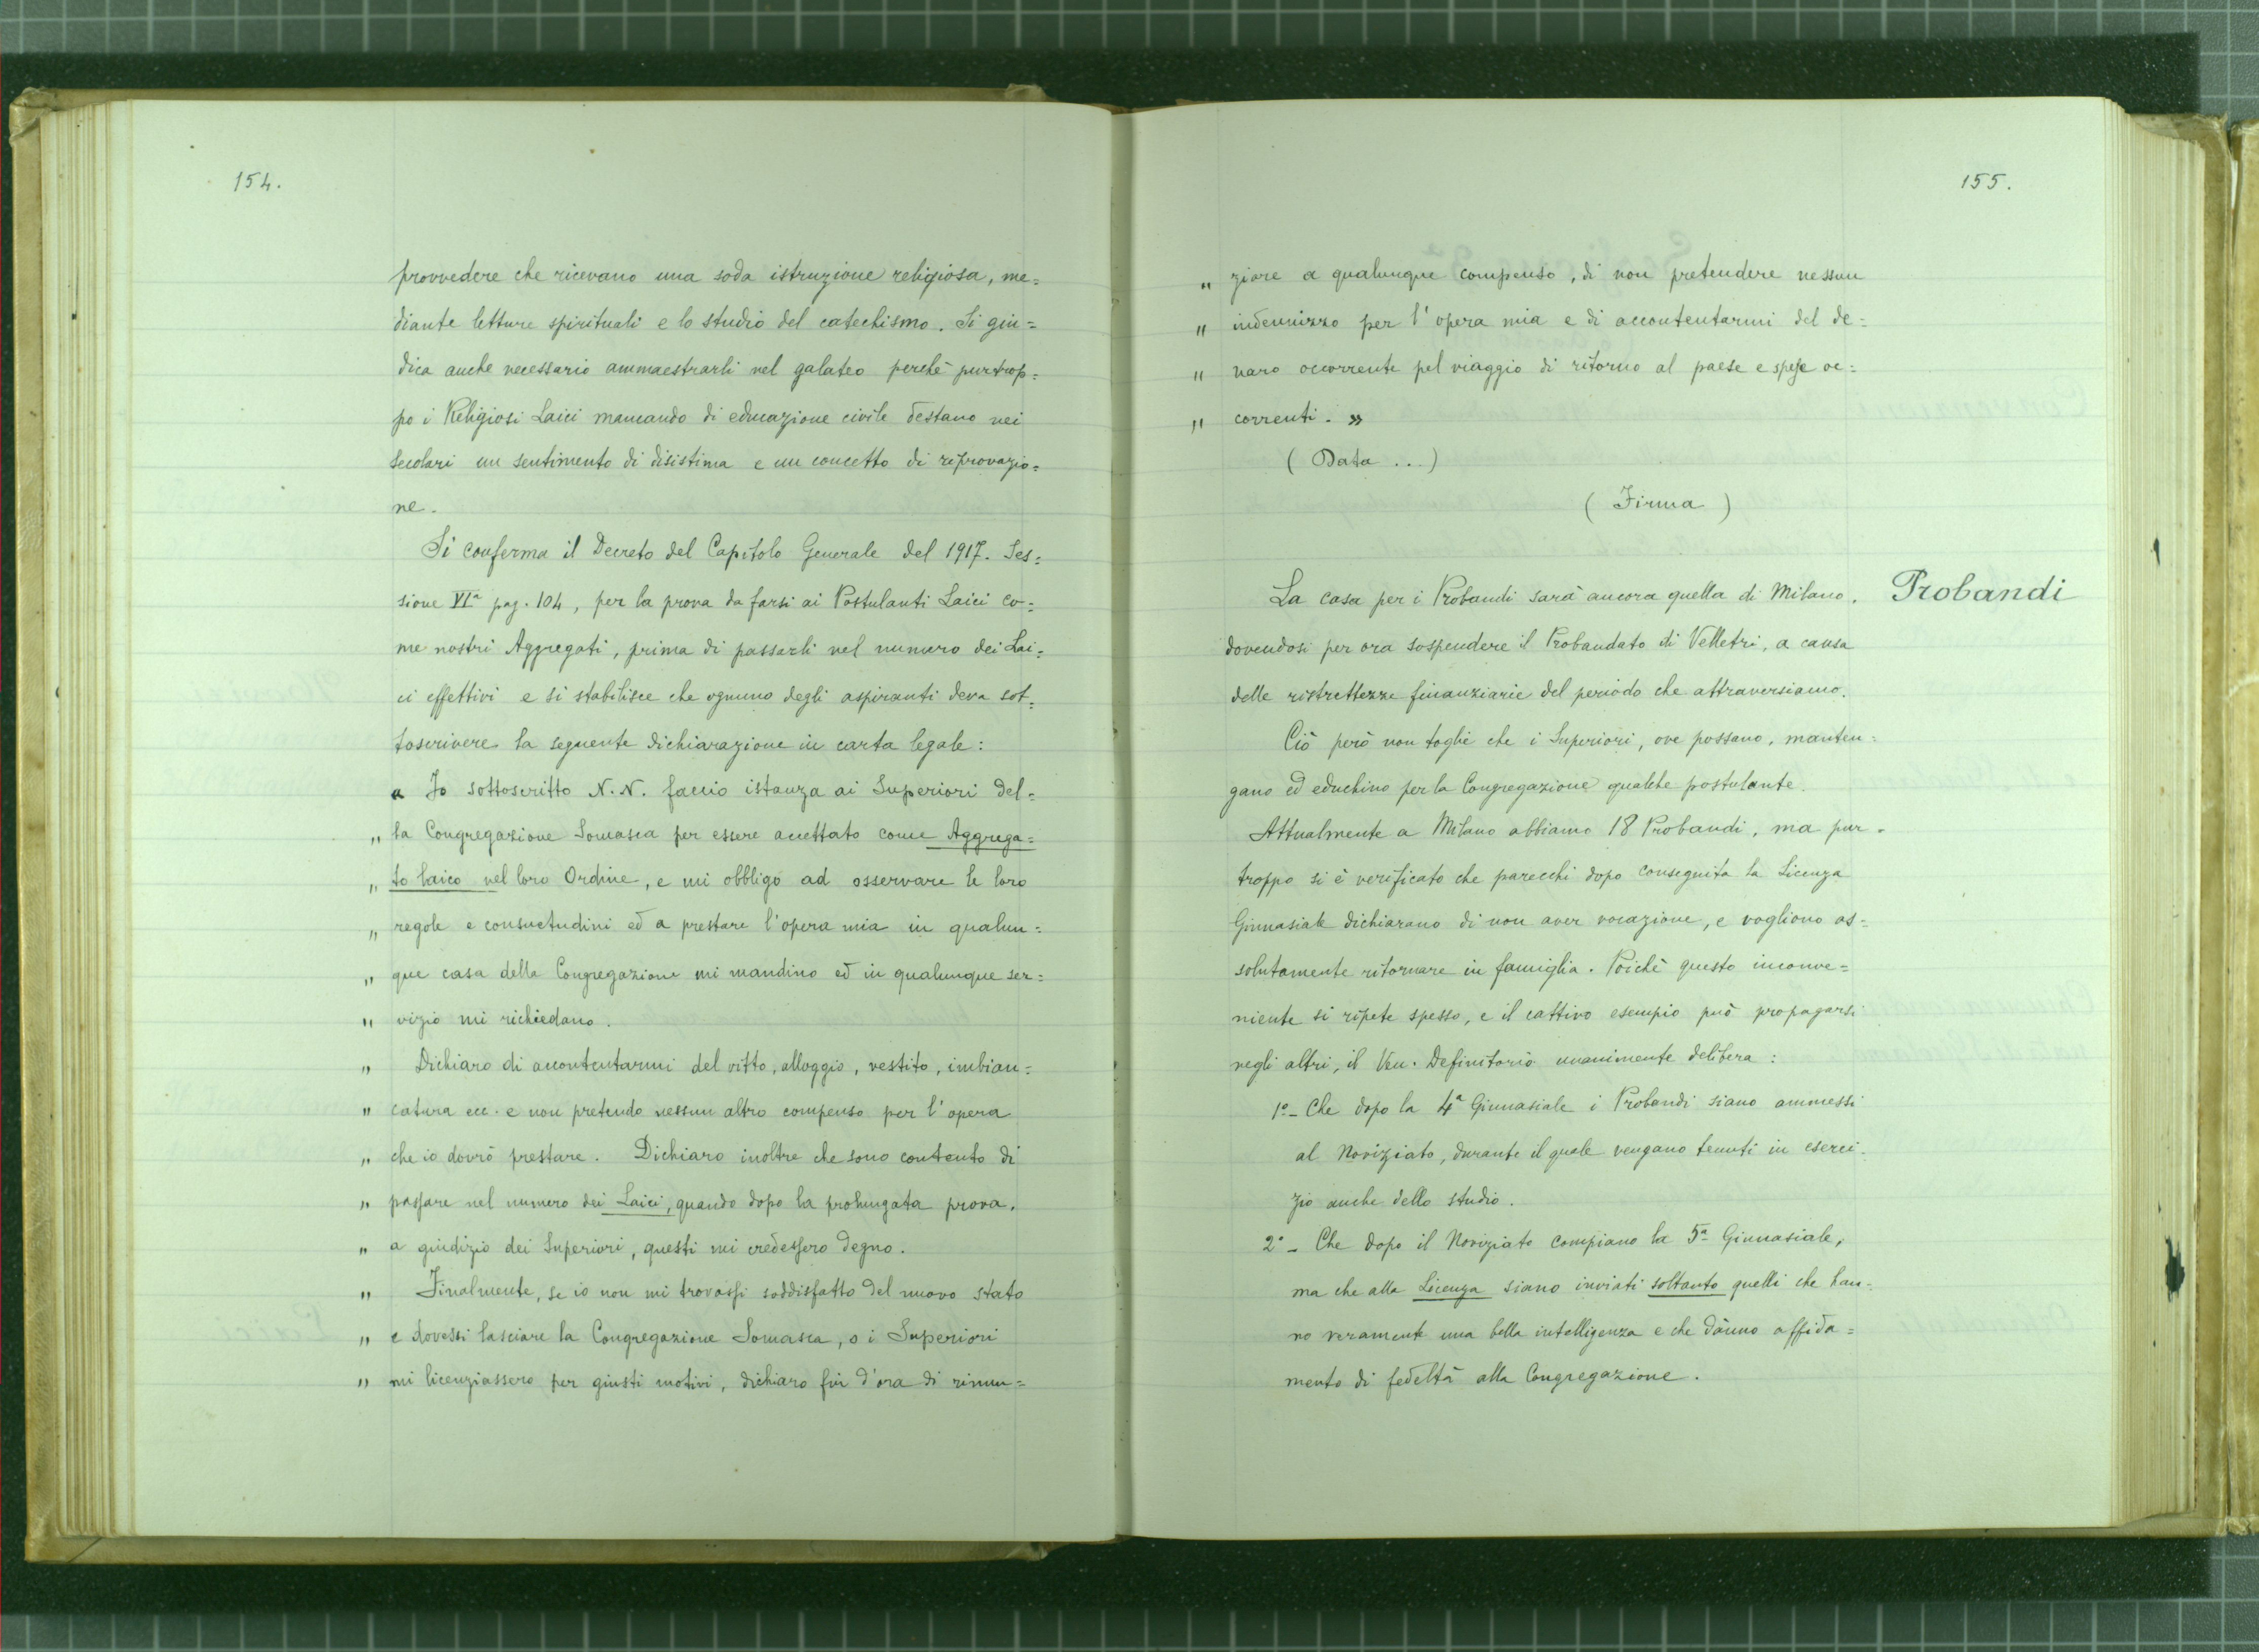 154.
provvedere che ricevano una soda istruzione religiosa, me=
diante letture spirituali e lo studio del catechismo. Si giu=
dica anche necessario ammaestrarli nel galateo perchè purtrop=
po i Religiosi Laici mancando di educazione civile destano nei
secolari un sentimento di disistima e un concetto di reprovazio=
ne.
Si conferma il Decreto del Capitolo Generale del 1917. Ses=
sione VIª pag. 104, per la prova da farsi ai Postulanti Laici co=
me nostri Aggregati, prima di passarli nel numero dei Lai=
ci effettivi e si stabilisce che ognuno degli aspiranti deva sot=
toscrivere la seguente dichiarazione in carta legale:
« Io sottoscritto N. N. faccio istanza ai Superiori del=
„ la Congregazione Somasca per essere accettato come Aggrega=
„ to laico nel loro Ordine, e mi obbligo ad osservare le loro
„ regole e consuetudini ed a prestare l'opera mia in qualun=
„ que casa della Congregazione mi mandino ed in qualunque ser=
„ vizio mi richiedano.
„ Dichiaro di accontentarmi del vitto, alloggio, vestito, imbian=
„ catura ecc. e non pretendo nessun altro compenso per l'opera
„ che io dovrò prestare. Dichiaro inoltre che sono contento di
„ passare nel numero dei Laici, quando dopo la prolungata prova,
„ a giudizio dei Superiori, questi mi credessero degno.
„ Finalmente, se io non mi trovassi soddisfatto del nuovo stato
„ e dovessi lasciare la Congregazione Somasca, o i Superiori
„ mi licenziassero per giusti motivi, dichiaro fin d'ora di rinun=
155.
„ ziare a qualunque compenso, di non pretendere nessun
„ indennizzo per l'opera mia e di accontentarmi del de=
„ naro occorrente pel viaggio di ritorno al paese e spese oc=
„ correnti. »
(Data ...)
(Firma)
Probandi
La casa per i Probandi sarà ancora quella di Milano,
dovendosi per ora sospendere il Probandato di Velletri, a causa
delle ristrettezze finanziarie del periodo che attraversiamo.
Ciò però non toglie che i Superiori, ove possano, manten=
gano ed educhino per la Congregazione qualche postulante.
Attualmente a Milano abbiamo 18 Probandi, ma pur=
troppo si è verificato che parecchi dopo conseguita la Licenza
Ginnasiale dichiarano di non aver vocazione, e vogliono as=
solutamente ritornare in famiglia. Poichè questo inconve=
niente si ripete spesso, e il cattivo esempio può propagarsi
negli altri, il Ven. Definitorio unanimente delibera:
1º - Che dopo la 4ª Ginnasiale i Probandi siano ammessi
al Noviziato, durante il quale vengano tenuti in eserci=
zio anche dello studio.
2º - Che dopo il Noviziato compiano la 5ª Ginnasiale,
ma che alla Licenza siano inviati soltanto quelli che han=
no veramente una bella intelligenza e che dànno affida=
mento di fedeltà alla Congregazione.